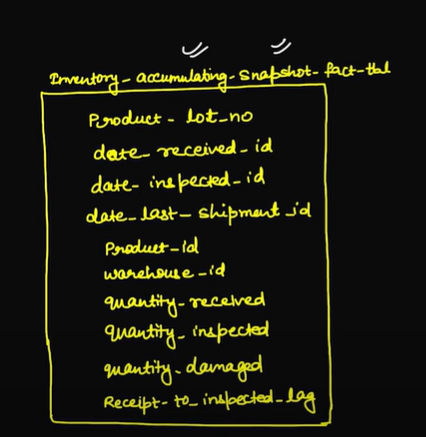 Inventory_accumulating_snapshot_fact_tbl
Product_lot_no
date_received_id
date_inspected_id
date_last_shipment_id
Product_id
warehouse_id
quantity_received
quantity_inspected
quantity_damaged
Receipt_to_inspected_lag